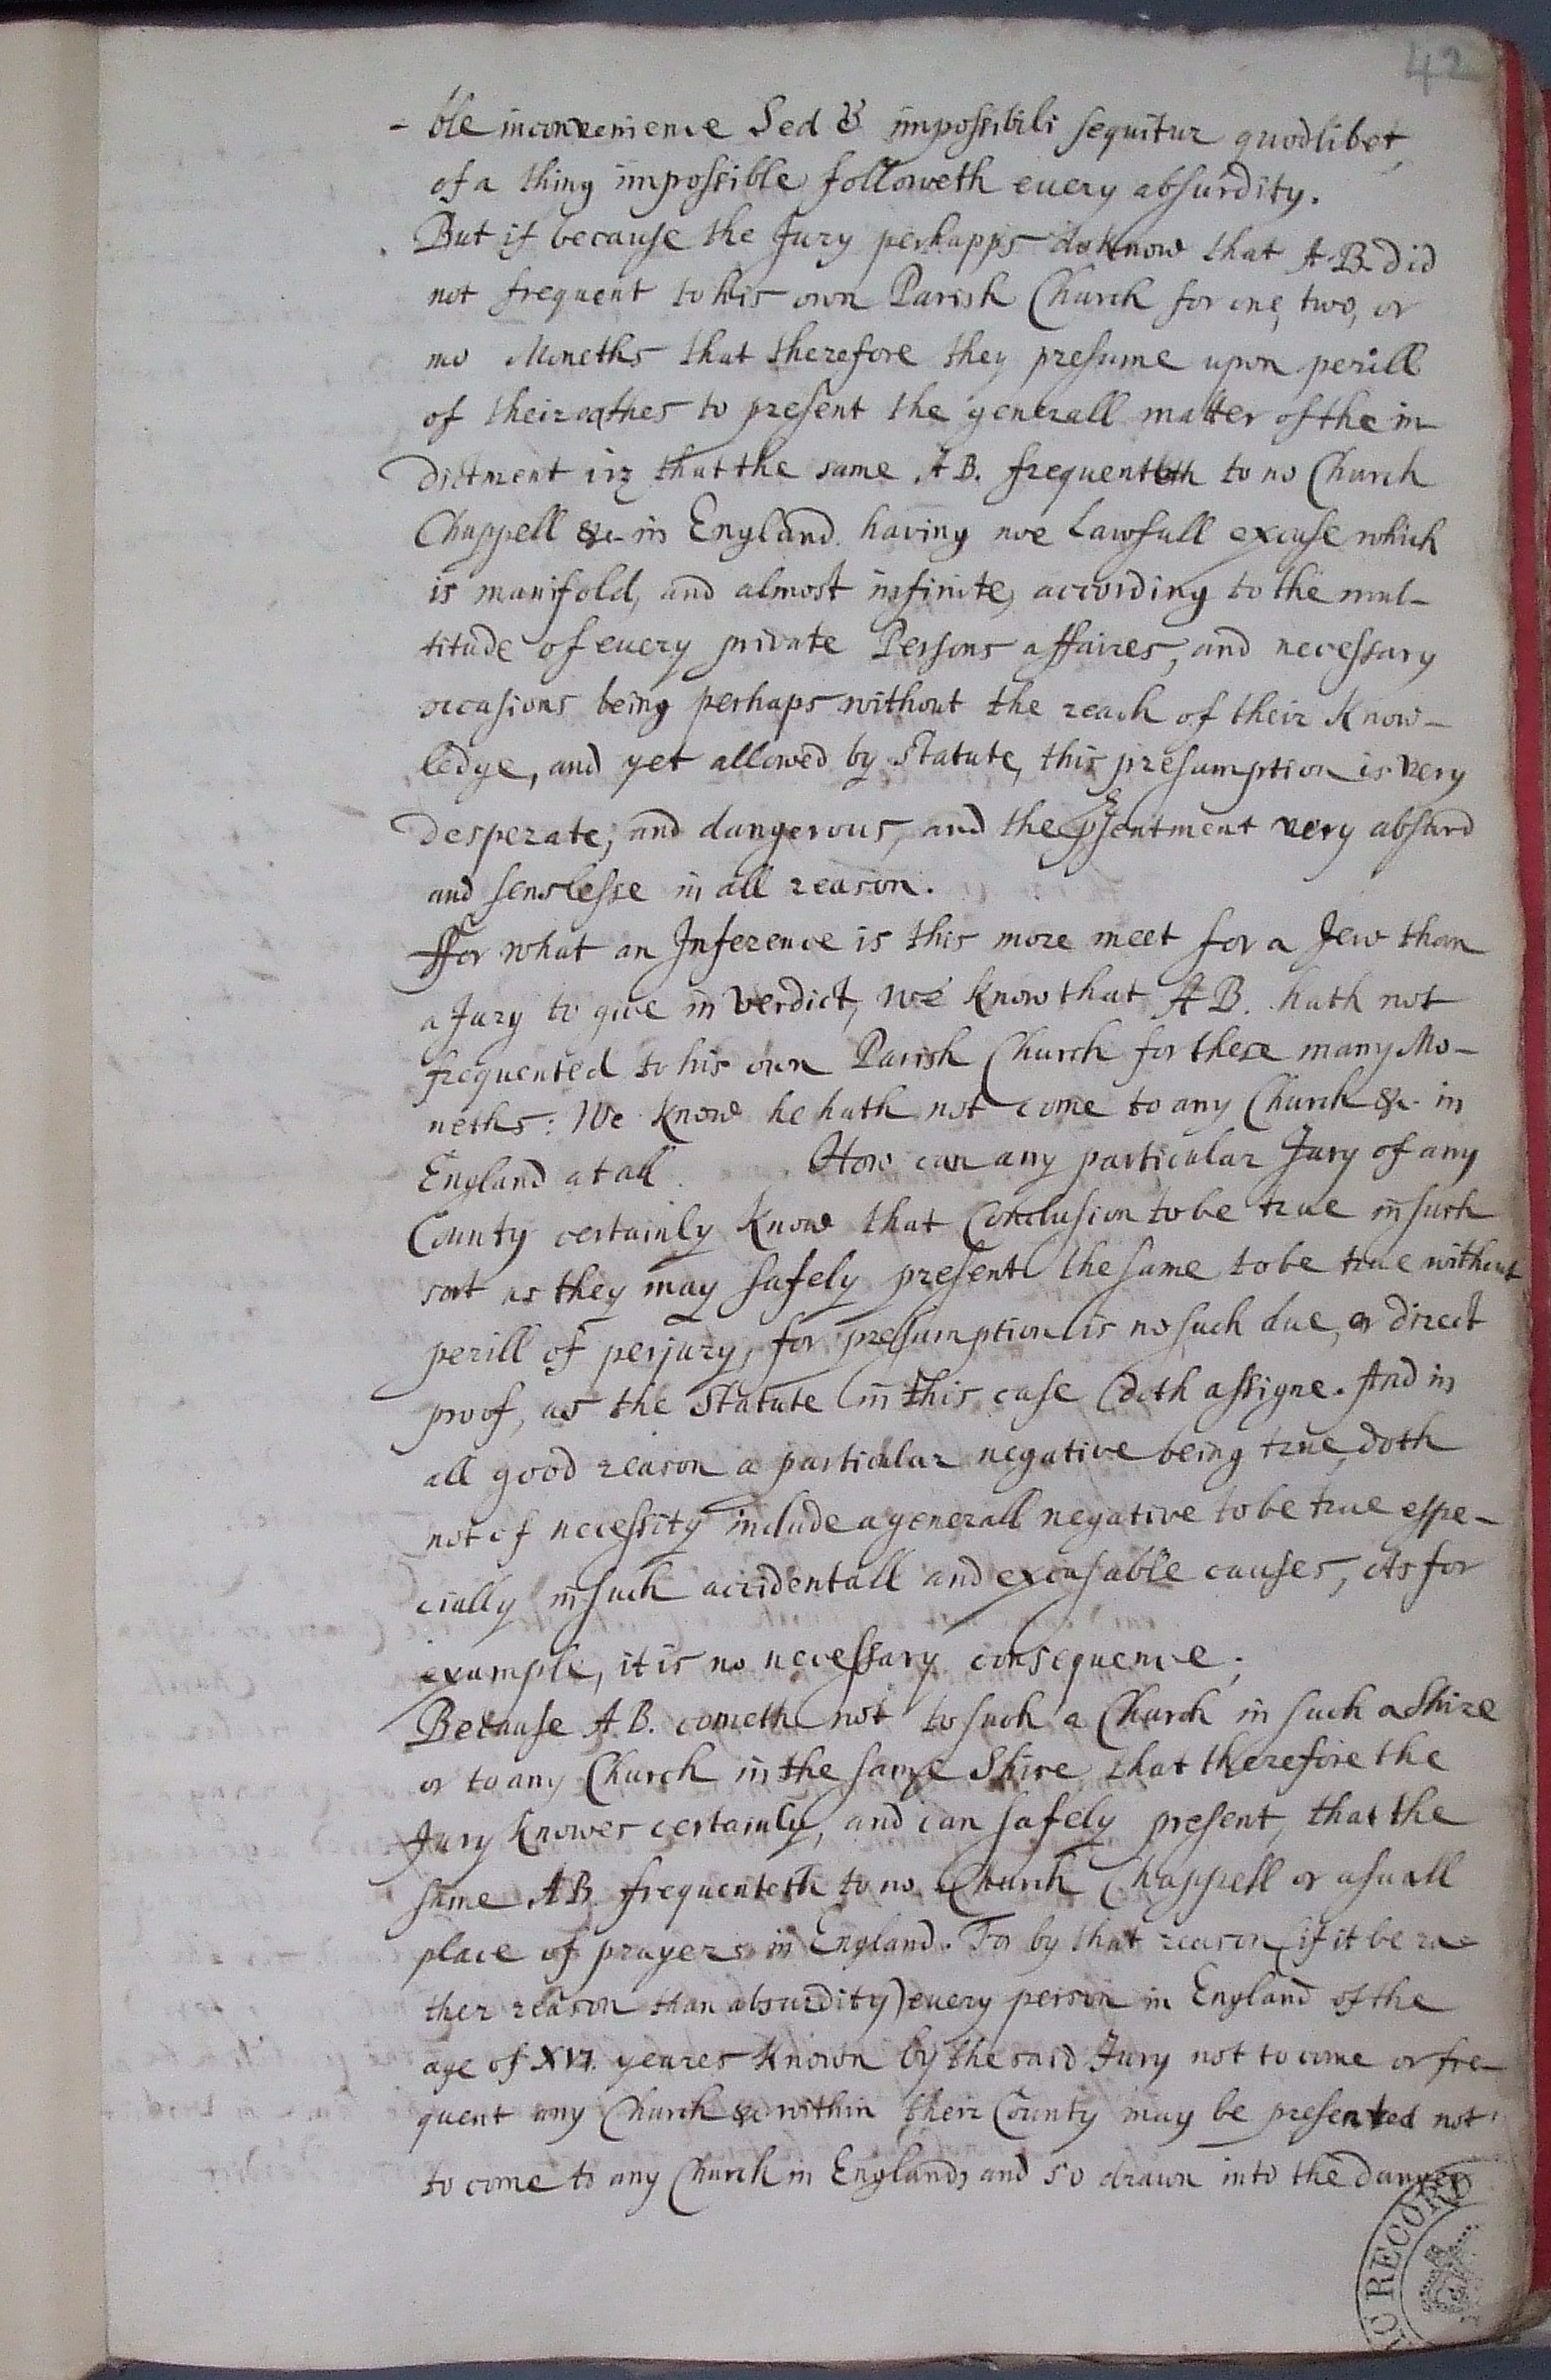 42
- ble inconvenience Sed & impossibili sequitur quodlibet,
of a thing impossible followeth euery absurdity.
But if because the Jury perhapps do know that A B did
not frequent to his own Parish Church for one, two, or
mo Moneths that therefore they presume upon perill
of their oathes to present the generall matter of the in-
dictment viz that the same A B. frequenteth to no Church
Chappell &c in England having noe Lawfull excuse which
is manifold, and almost infinite, according to the mul-
titude of euery private Persons affaires, and necessary
occasions being perhaps without the reach of their Know-
ledge, and yet allowed by Statute, this presumption is very
desperate, and dangerous, and the psentment very absurd
and senslesse in all reason.
ffor what an Inference is this more meet for a Jew than
a Jury to give in verdict, we know that A B. hath not
frequented to his own Parish Church for these many Mo-
neths: We know he hath not come to any Church &c in
England at all. How can any particular Jury of any
County certainly know that Conclusion to be true in such
sort as they may safely present the same to be true without
perill of perjury, for presumption is no such due, or direct
proof, as the Statute in this case doth assigne. And in
all good reason a particular negative being true, doth
not of necessity include a generall negative to be true espe-
cially in such accidentall and excusable causes, As for
example, it is no necessary consequence;
Because A B. cometh not to such a Church in such a Shire
or to any Church in the same Shire that therefore the
Jury knowes certainly, and can safely present, that the
same A B. frequenteth to no Church Chappell or usuall
place of prayers in England. For by that reason (if it be ra-
ther reason than absurdity) euery person in England of the
age of XVI. yeares known by the said Jury not to come or fre-
quent any Church &c within their County may be presented not
to come to any Church in England, and so drawn into the danger
C RECORD